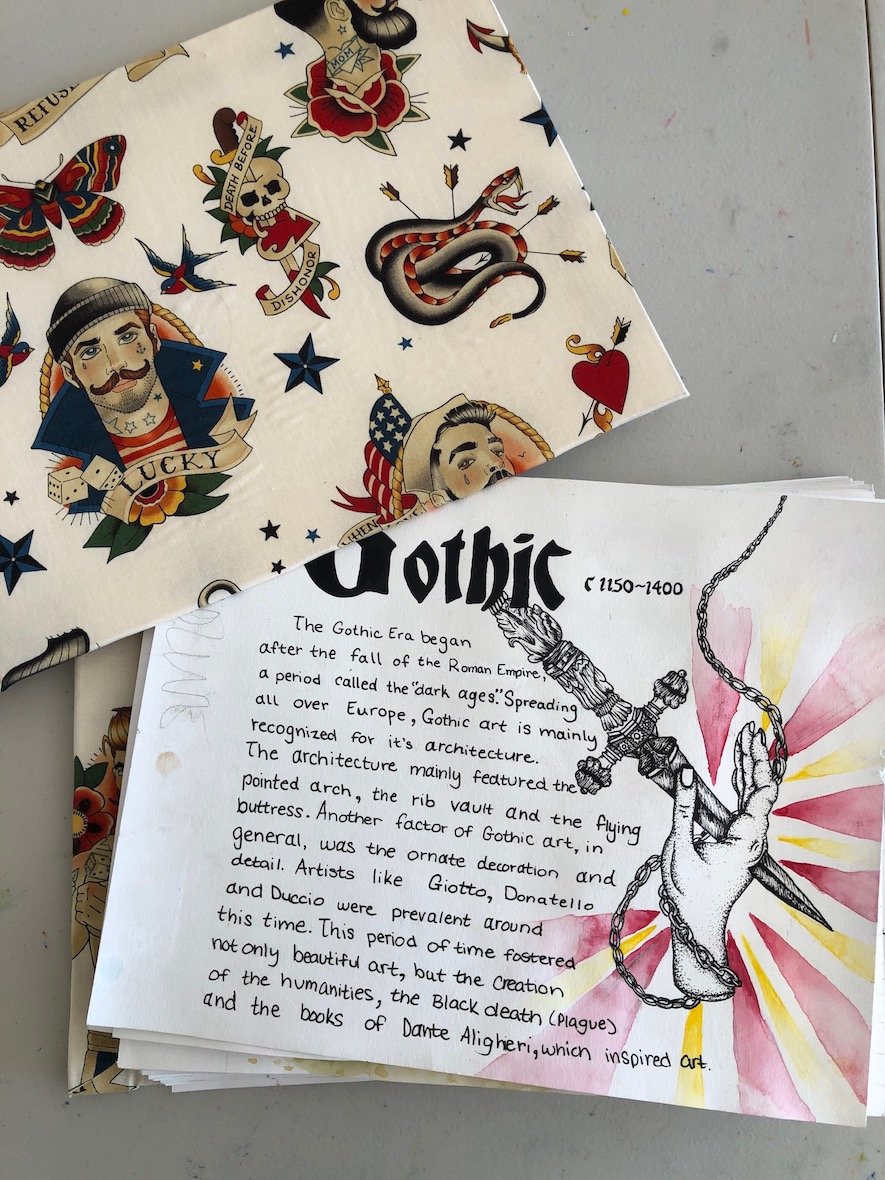 REFUS
MOM
DEATH BEFORE
DISHONOR
LUCKY
WHEN
Gothic
c 1150~1400
The Gothic Era began
after the fall of the Roman Empire,
a period called the "dark ages". Spreading
all over Europe, Gothic art is mainly
recognized for it's architecture.
The architecture mainly featured the
pointed arch, the rib vault and the flying
buttress. Another factor of Gothic art, in
general, was the ornate decoration and
detail. Artists like Giotto, Donatello
and Duccio were prevalent around
this time. This period of time fostered
not only beautiful art, but the creation
of the humanities, the Black death (Plague)
and the books of Dante Aligheri, which inspired art.